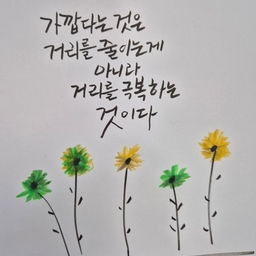 가깝다는것은
거리를 줄이는게
아니라
거리를 극복하는
것이다